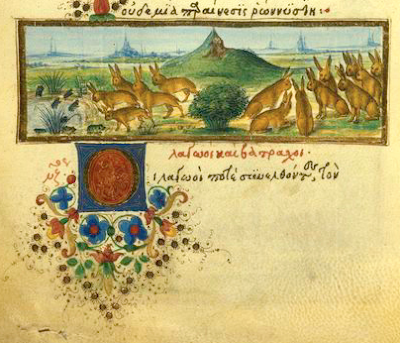 ουδεμία παραίνεσις ρωννύσι
λαγωοὶ καὶ βάτραχοι.
Οι λαγωοὶ ποτὲ συνελθόντες, τὸν